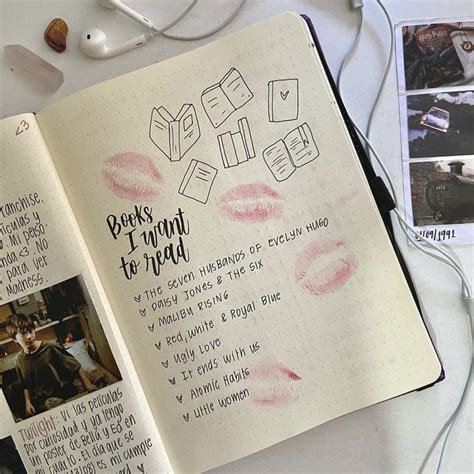 <3
ranchise,
lículas y
Mi perso-
enda <3. No
para ver
Madness.
Twilight: Vi las películas
por curiosidad y ya tengo
un poster de Bella y Ed en
mi cuarto. El día que se
es mi cumple
Books
I want
to read
THE SEVEN HUSBANDS OF EVELYN HUGO
DAISY JONES & THE SIX
MALIBU RISING
RED, WHITE & ROYAL BLUE
UGLY LOVE
IT ENDS WITH US
ATOMIC HABITS
LITTLE WOMEN
01/09/1991